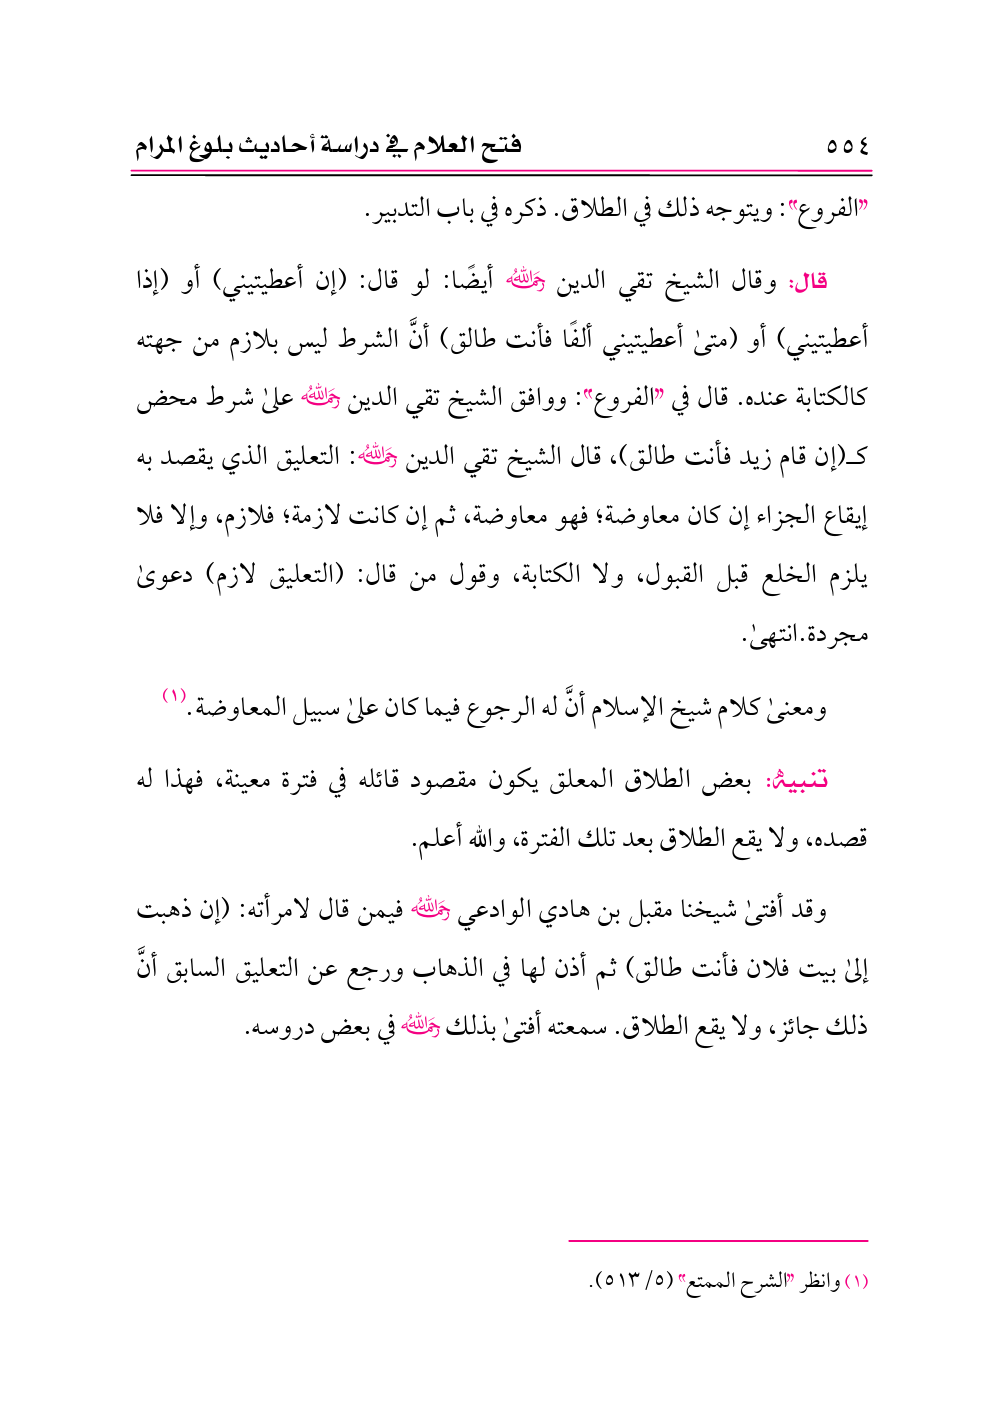 ٥٥٤ فتح العلام في دراسة أحاديث بلوغ المرام
"الفروع": ويتوجه ذلك في الطلاق. ذكره في باب التدبير.
قال: وقال الشيخ تقي الدين رحمه الله أيضًا: لو قال: (إن أعطيتيني) أو (إذا
أعطيتيني) أو (متىٰ أعطيتيني ألفًا فأنت طالق) أنَّ الشرط ليس بلازم من جهته
كالكتابة عنده. قال في "الفروع": ووافق الشيخ تقي الدين رحمه الله علىٰ شرط محض
كـ(إن قام زيد فأنت طالق)، قال الشيخ تقي الدين رحمه الله: التعليق الذي يقصد به
إيقاع الجزاء إن كان معاوضة؛ فهو معاوضة، ثم إن كانت لازمة؛ فلازم، وإلا فلا
يلزم الخلع قبل القبول، ولا الكتابة، وقول من قال: (التعليق لازم) دعوىٰ
مجردة.انتهىٰ.
ومعنىٰ كلام شيخ الإسلام أنَّ له الرجوع فيما كان علىٰ سبيل المعاوضة.(١)
تنبيهٌ: بعض الطلاق المعلق يكون مقصود قائله في فترة معينة، فهذا له
قصده، ولا يقع الطلاق بعد تلك الفترة، والله أعلم.
وقد أفتىٰ شيخنا مقبل بن هادي الوادعي رحمه الله فيمن قال لامرأته: (إن ذهبت
إلىٰ بيت فلان فأنت طالق) ثم أذن لها في الذهاب ورجع عن التعليق السابق أنَّ
ذلك جائز، ولا يقع الطلاق. سمعته أفتىٰ بذلك رحمه الله في بعض دروسه.
(١) وانظر "الشرح الممتع" (٥/ ٥١٣).